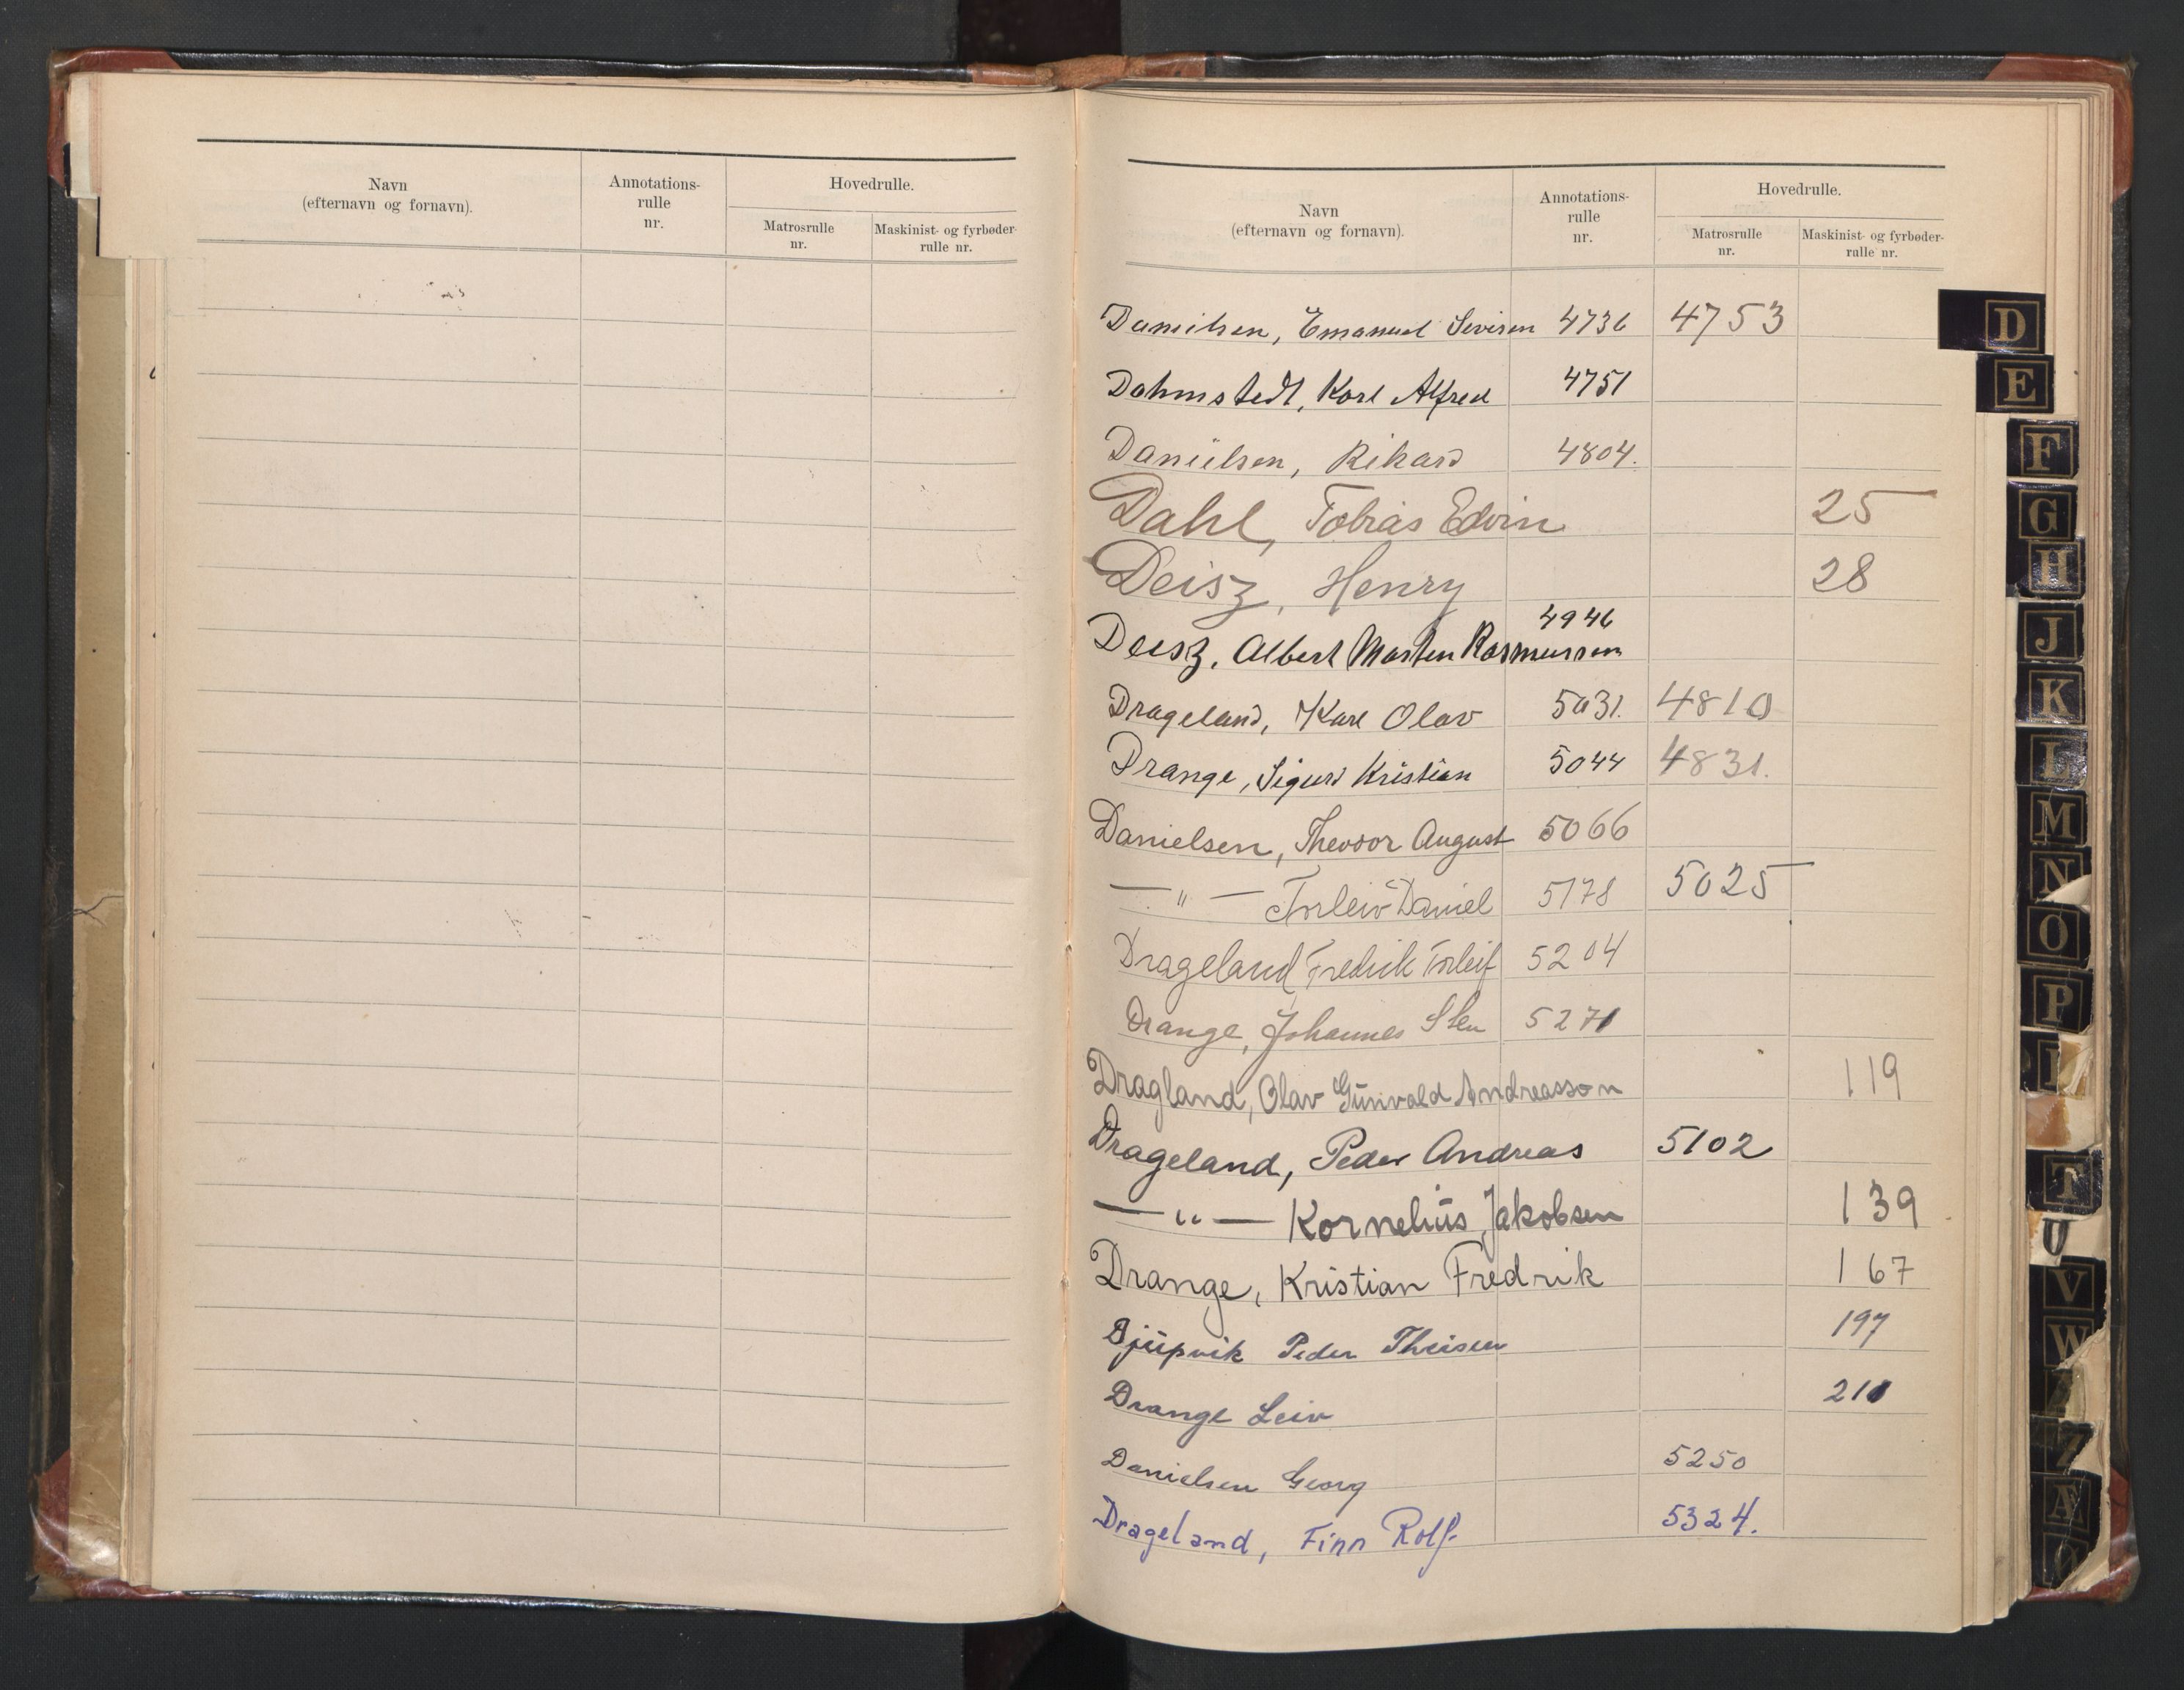 Navn
(efternavn og fornavn).
Annotations-
rulle
nr.
Hovedrulle.
Matrosrulle
nr.
Maskinist- og fyrbøder-
rulle nr.
Navn
(efternavn og fornavn).
Annotations-
rulle
nr.
Hovedrulle.
Matrosrulle
nr.
Maskinist- og fyrbøder-
rulle nr.
Danielsen, Emanuel Sevrin 4736 4753
Dahmstedt, Karl Alfred 4751
Danielsen, Rikard 4804.
Dahl, Tobias Edvin 25
Deisz, Henry 28
4946
Deisz, Albert Marten Rasmussen
Drageland, Karl Olav 5031. 4810
Drange, Sigurd Kristian 5044 4831.
Danielsen, Theodor August 5066
— " — Torleiv Daniel 5178 5025
Drageland Fredrik Torleif 5204
Drange, Johannes Sten 5271
Dragland, Olav Gunvald Andreasson 119
Drageland, Peder Andreas 5102
— " — Kornelius Jakobsen 139
Drange, Kristian Fredrik 167
Djupvik Peder Theisen 197
Drange Leiv 211
Danielsen Georg 5250
Drageland, Finn Rolf. 5324.
D
E
F
G
H
J
K
L
M
N
O
P
T
U
V
W
Z
Æ
Ø